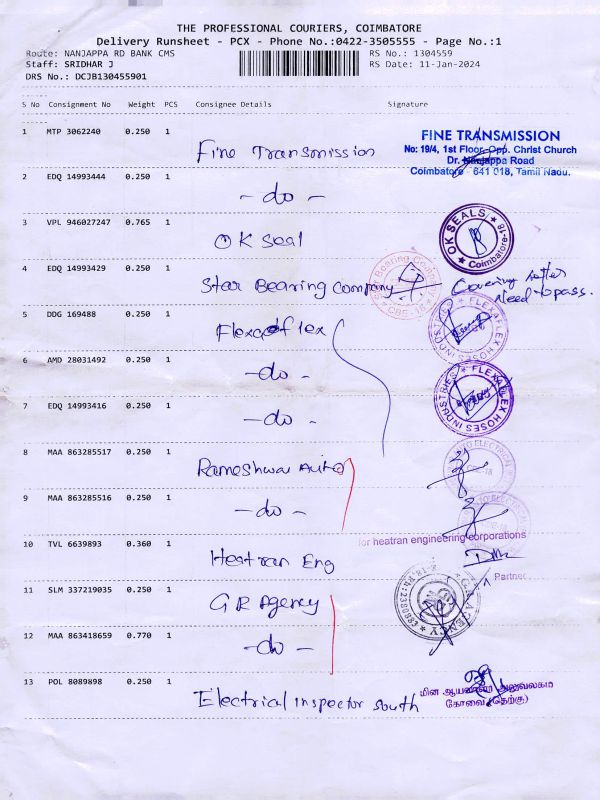 THE PROFESSIONAL COURIERS, COIMBATORE
Delivery Runsheet - PCX - Phone No.:0422-3505555 - Page No.:1
Route: NANJAPPA RD BANK CMS RS No.: 1304559
Staff: SRIDHAR J RS Date: 11-Jan-2024
DRS No.: DCJB130455901
S No Consignment No Weight PCS Consignee Details Signature
1 MTP 3062240 0.250 1 Fine Transmission
FINE TRANSMISSION
No: 19/4, 1st Floor, Opp. Christ Church
Dr. Nanjappa Road
Coimbatore - 641 018, Tamil Nadu.
2 EDQ 14993444 0.250 1 - do -
3 VPL 946027247 0.765 1 OK Seal
OK SEALS
Coimbatore-18
4 EDQ 14993429 0.250 1 Star Bearing Company
Bearing
CBE-18
Covering letter
Need to pass.
5 DDG 169488 0.250 1 Flexaoflex
FLEXAFLEX HOSES INDUSTRIES
6 AMD 28031492 0.250 1 - do -
FLEXAFLEX HOSES INDUSTRIES
7 EDQ 14993416 0.250 1 - do -
8 MAA 863285517 0.250 1 Rameshwar Auto
CBE-18
9 MAA 863285516 0.250 1 - do -
10 TVL 6639893 0.360 1 Heatran Eng
for heatran engineering corporations
Partner
11 SLM 337219035 0.250 1 G R Agency
12 MAA 863418659 0.770 1 - do -
AGENCY
13 POL 8089898 0.250 1 Electrical inspector south
மின் ஆய்வாளர் அலுவலகம்
கோவை (தெற்கு)